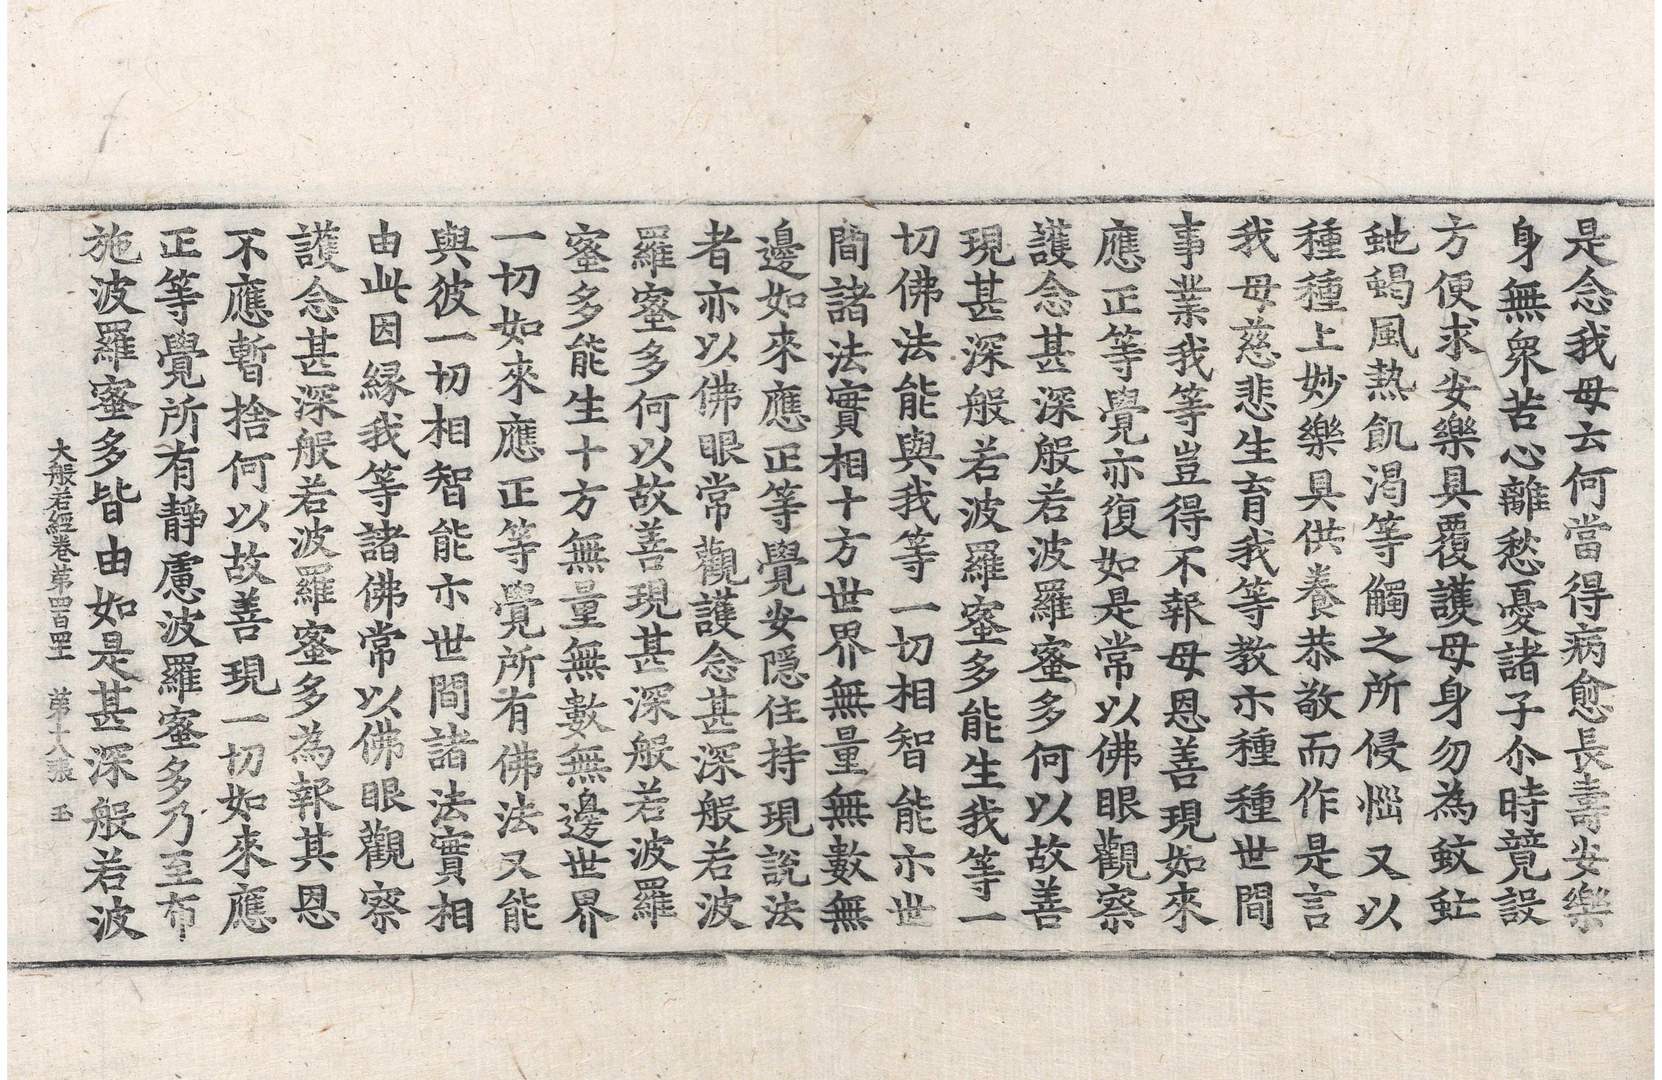 是念我母云何當得病愈長壽安樂
身無衆苦心離愁憂諸子尒時競設
方便求安樂具覆護母身勿為蚊虻
虵蝎風熱飢渴等觸之所侵惱又以
種種上妙樂具供養恭敬而作是言
我母慈悲生育我等教示種種世間
事業我等豈得不報母恩善現如來
應正等覺亦復如是常以佛眼觀察
護念甚深般若波羅蜜多何以故善
現甚深般若波羅蜜多能生我等一
切佛法能與我等一切相智能示世
間諸法實相十方世界無量無數無
邊如來應正等覺安隱住持現說法
者亦以佛眼常觀護念甚深般若波
羅蜜多何以故善現甚深般若波羅
蜜多能生十方無量無數無邊世界
一切如來應正等覺所有佛法又能
與彼一切相智能示世間諸法實相
由此因緣我等諸佛常以佛眼觀察
護念甚深般若波羅蜜多為報其恩
不應暫捨何以故善現一切如來應
正等覺所有靜慮波羅蜜多乃至布
施波羅蜜多皆由如是甚深般若波
大般若經卷第四百四十一 第十八張 玉